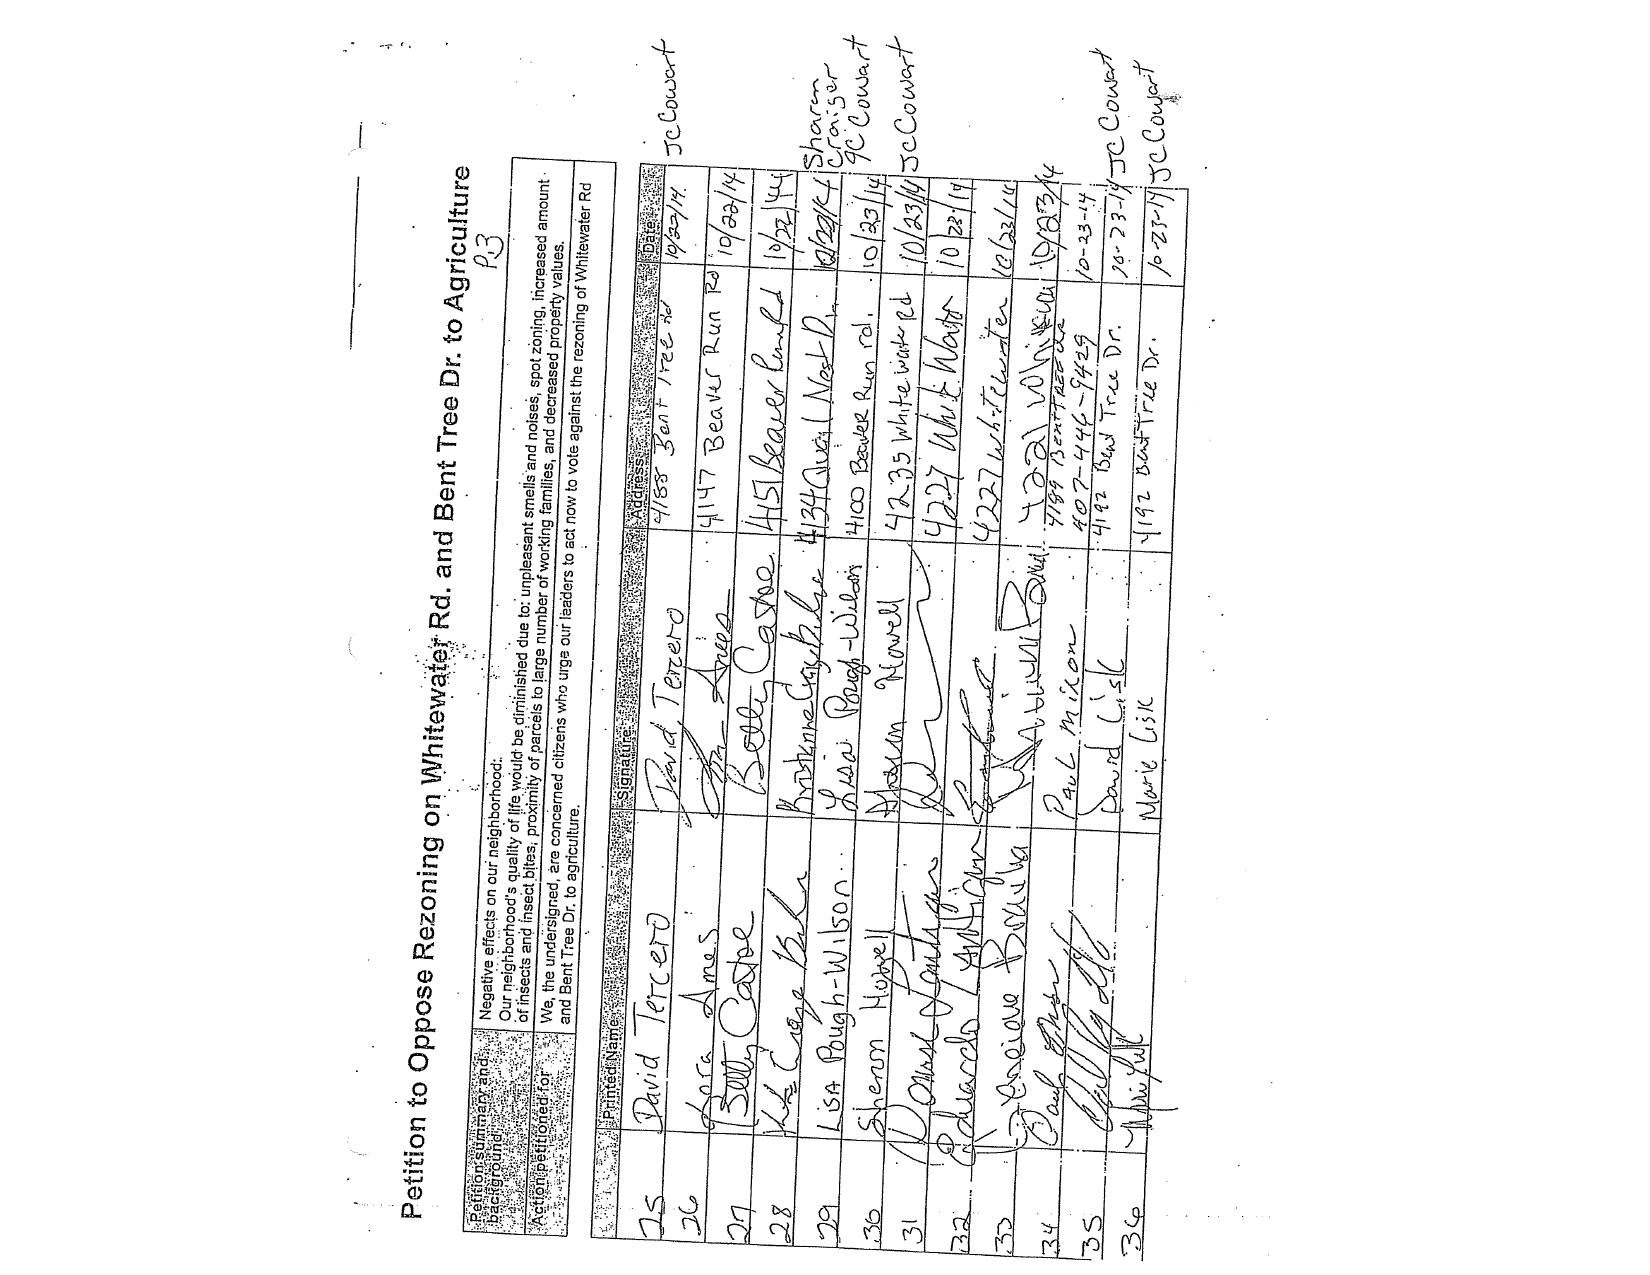 Petition to Oppose Rezoning on Whitewater Rd. and Bent Tree Dr. to Agriculture
P.3
Petition summary and background
Negative effects on our neighborhood:
Our neighborhood's quality of life would be diminished due to: unpleasant smells and noises, spot zoning, increased amount
of insects and insect bites, proximity of parcels to large number of working families, and decreased property values.
Action petitioned for
We, the undersigned, are concerned citizens who urge our leaders to act now to vote against the rezoning of Whitewater Rd
and Bent Tree Dr. to agriculture.
Printed Name Signature Address Date
25 David Tercero David Tercero 4188 Bent Tree Rd 10/22/14 JC Cowart
26 Ames 4147 Beaver Run Rd 10/22/14
27 Betty Catoe Betty Catoe 4151 Beaver Run Rd 10/22/14
28 4134 Quail Nest Dr. 10/22/14 Sharon Craiser
29 LISA Pough-Wilson Lisa Pough-Wilson 4100 Beaver Run rd. 10/23/14 JC Cowart
30 Sharon 4235 Whitewater rd 10/23/14 JC Cowart
31 4227 Whit Water 10/23/14
32 Eduardo 4227 Whitewater 10/23/14
33 4221 10/23/14
34 Paul Mixon 4189 Bent Tree Dr 407-446-9429 10-23-14
35 David Lisk 4192 Bent Tree Dr. 10-23-14 JC Cowart
36 Marie Lisk 4192 Bent Tree Dr. 10-23-14 JC Cowart